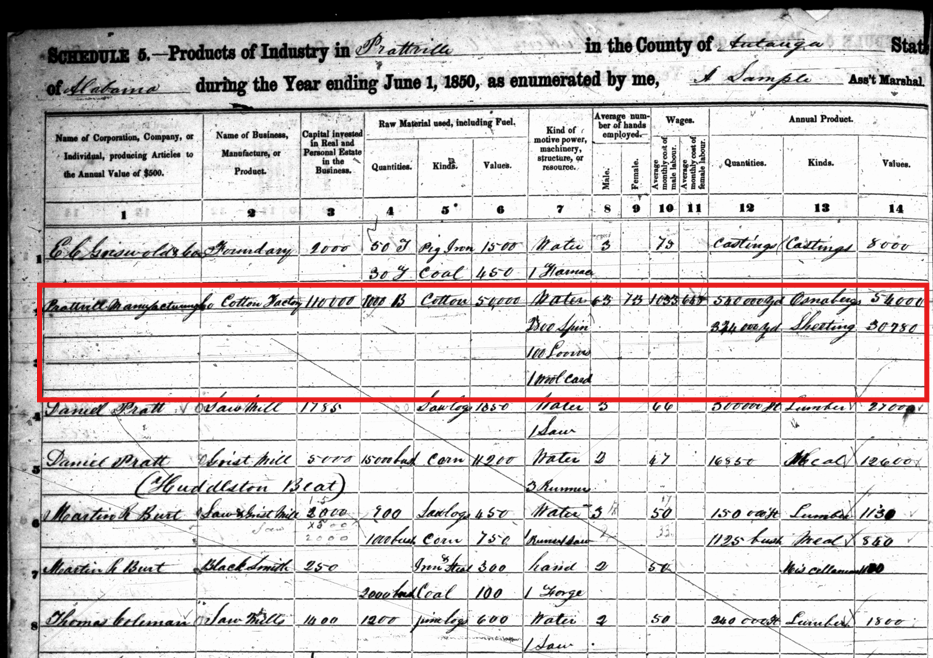 SCHEDULE 5.—Products of Industry in Prattville in the County of Autauga State
of Alabama during the Year ending June 1, 1850, as enumerated by me, A Sample Ass't Marshal.
Name of Corporation, Company, or Individual, producing Articles to the Annual Value of $500.
Name of Business, Manufacture, or Product.
Capital invested in Real and Personal Estate in the Business.
Raw Material used, including Fuel.
Quantities. Kinds. Values.
Kind of motive power, machinery, structure, or resource.
Average number of hands employed.
Male. Female.
Wages.
Average monthly cost of male labour. Average monthly cost of female labour.
Annual Product.
Quantities. Kinds. Values.
1 2 3 4 5 6 7 8 9 10 11 12 13 14
1 E C Griswold & Co Foundary 2000 50 T Pig Iron 1500 Water 3 75 Castings Castings 8000
30 T Coal 450 1 Furnace
Prattvill Manufacturing Co Cotton Factory 110000 Cotton 50,000 Water 63 73 1033 540000 yd Osnabergs 54000
2800 Spin 324000 yd Sheeting 30780
3 100 Looms
1 Wool Card
4 Daniel Pratt Saw Mill 1785 Saw logs 1350 Water 3 66 300000 ft Lumber 27000
1 Saw
5 Daniel Pratt Grist Mill 5000 15000 bush Corn 11200 Water 2 47 16850 Meal 12600
(Huddleston Beat) 3 Runner
6 Martin K Burt Saw & Grist Mill 2000 900 Saw logs 450 Water 3 50 150 000 ft Lumber 1130
2000 1000 bush Corn 750 1 Runner Saw 1125 bush Meal 850
7 Martin K Burt Black Smith 250 Iron & Steal 300 hand 2 50 Miscellaneous
2000 bush Coal 100 1 Forge
8 Thomas Coleman Saw Mills 1400 1200 pine logs 600 Water 2 50 240 000 ft Lumber 1800
1 Saw